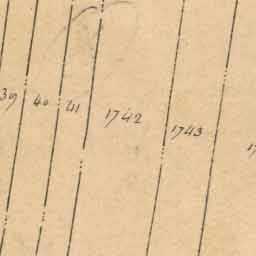 39 40 41 1742 1743